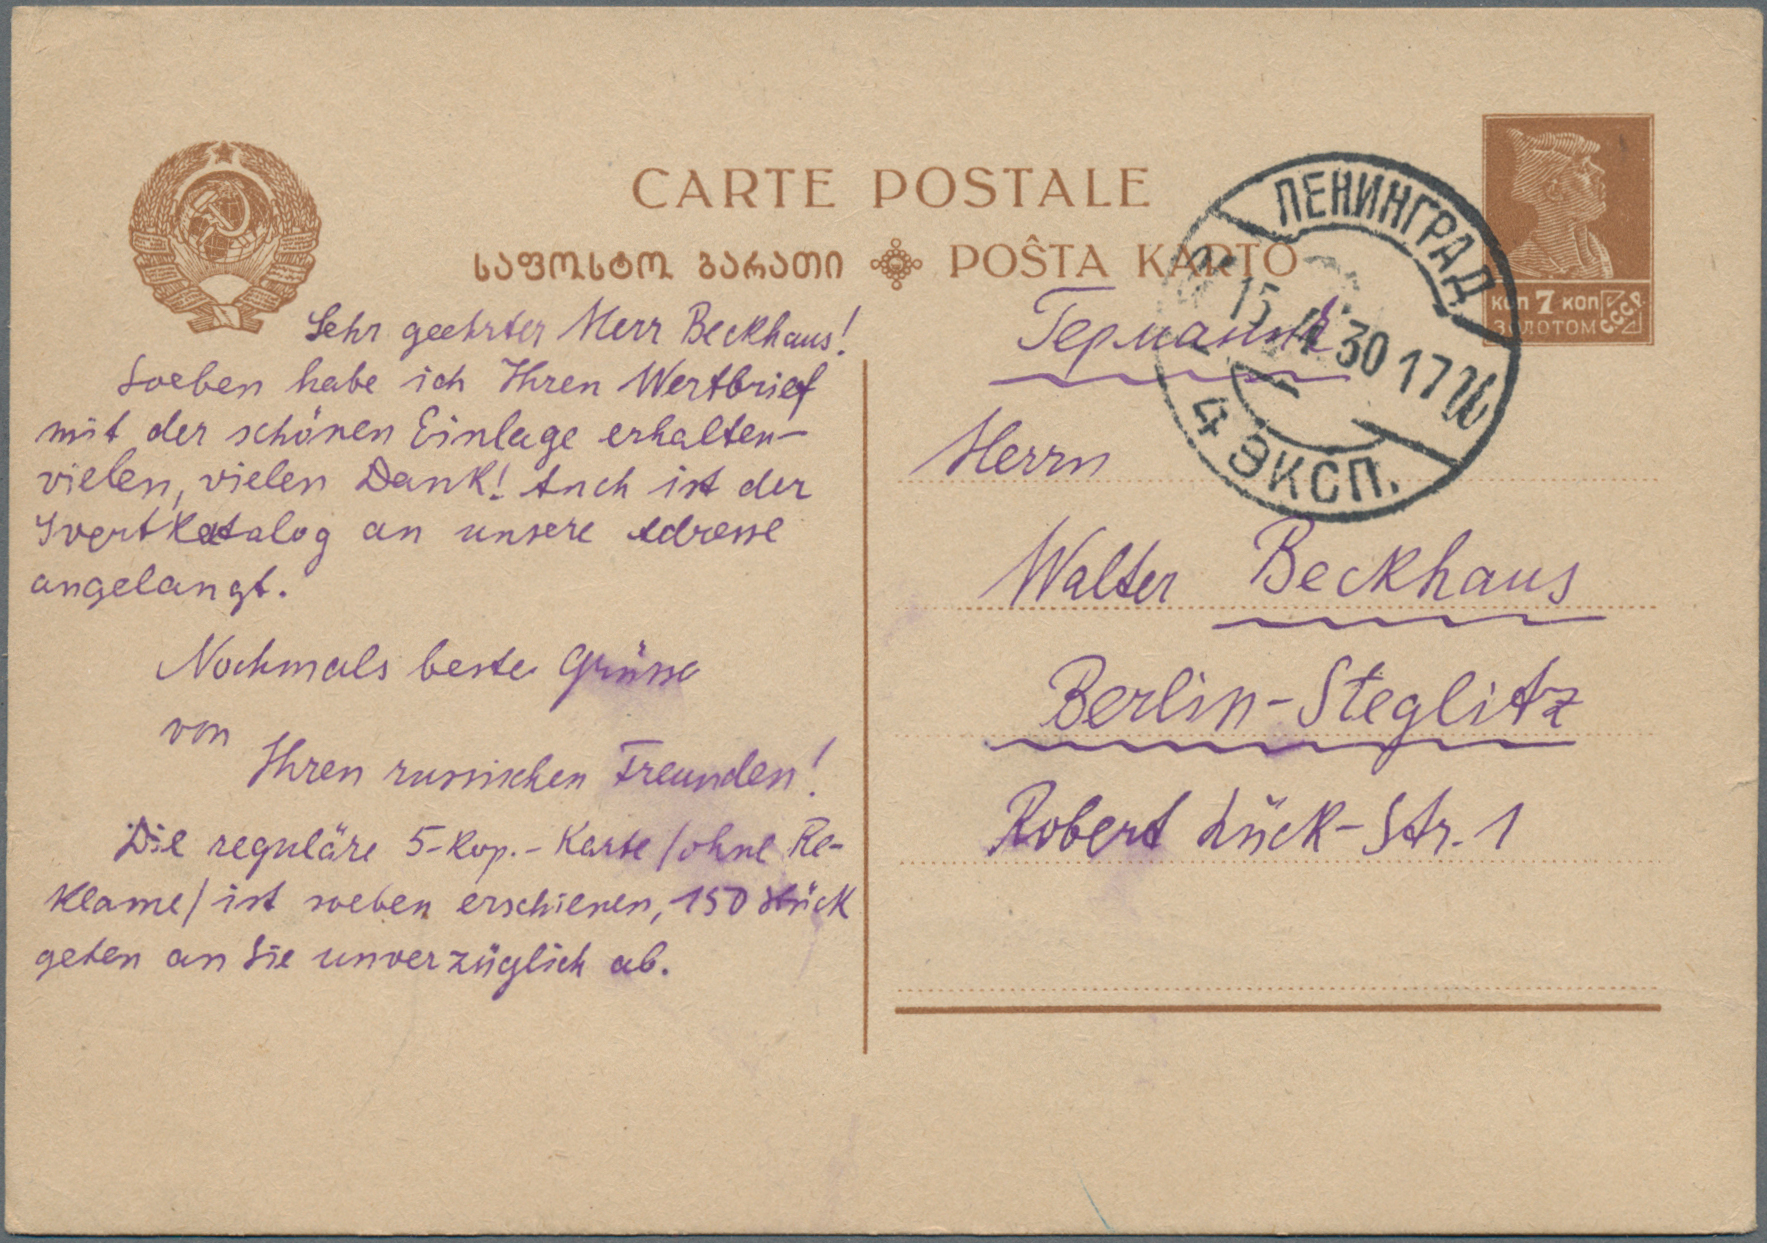 CARTE POSTALE
საფოსტო ბარათი POŜTA KARTO
коп 7 коп
ЗОЛОТОМ
СССР
ЛЕНИНГРАД
15 4 30 17
4 ЭКСП.
Sehr geehrter Herr Beckhaus!
Soeben habe ich Ihren Wertbrief
mit der schönen Einlage erhalten –
vielen, vielen Dank! Auch ist der
Yvertkatalog an unsere Adresse
angelangt.
Nochmals beste Grüsse
von
Ihren russischen Freunden!
Die reguläre 5-Kop.-Karte /ohne Re-
klame/ ist soeben erschienen, 150 Stück
gehen an Sie unverzüglich ab.
Германия
Herrn
Walter Beckhaus
Berlin-Steglitz
Robert Lück-Str. 1